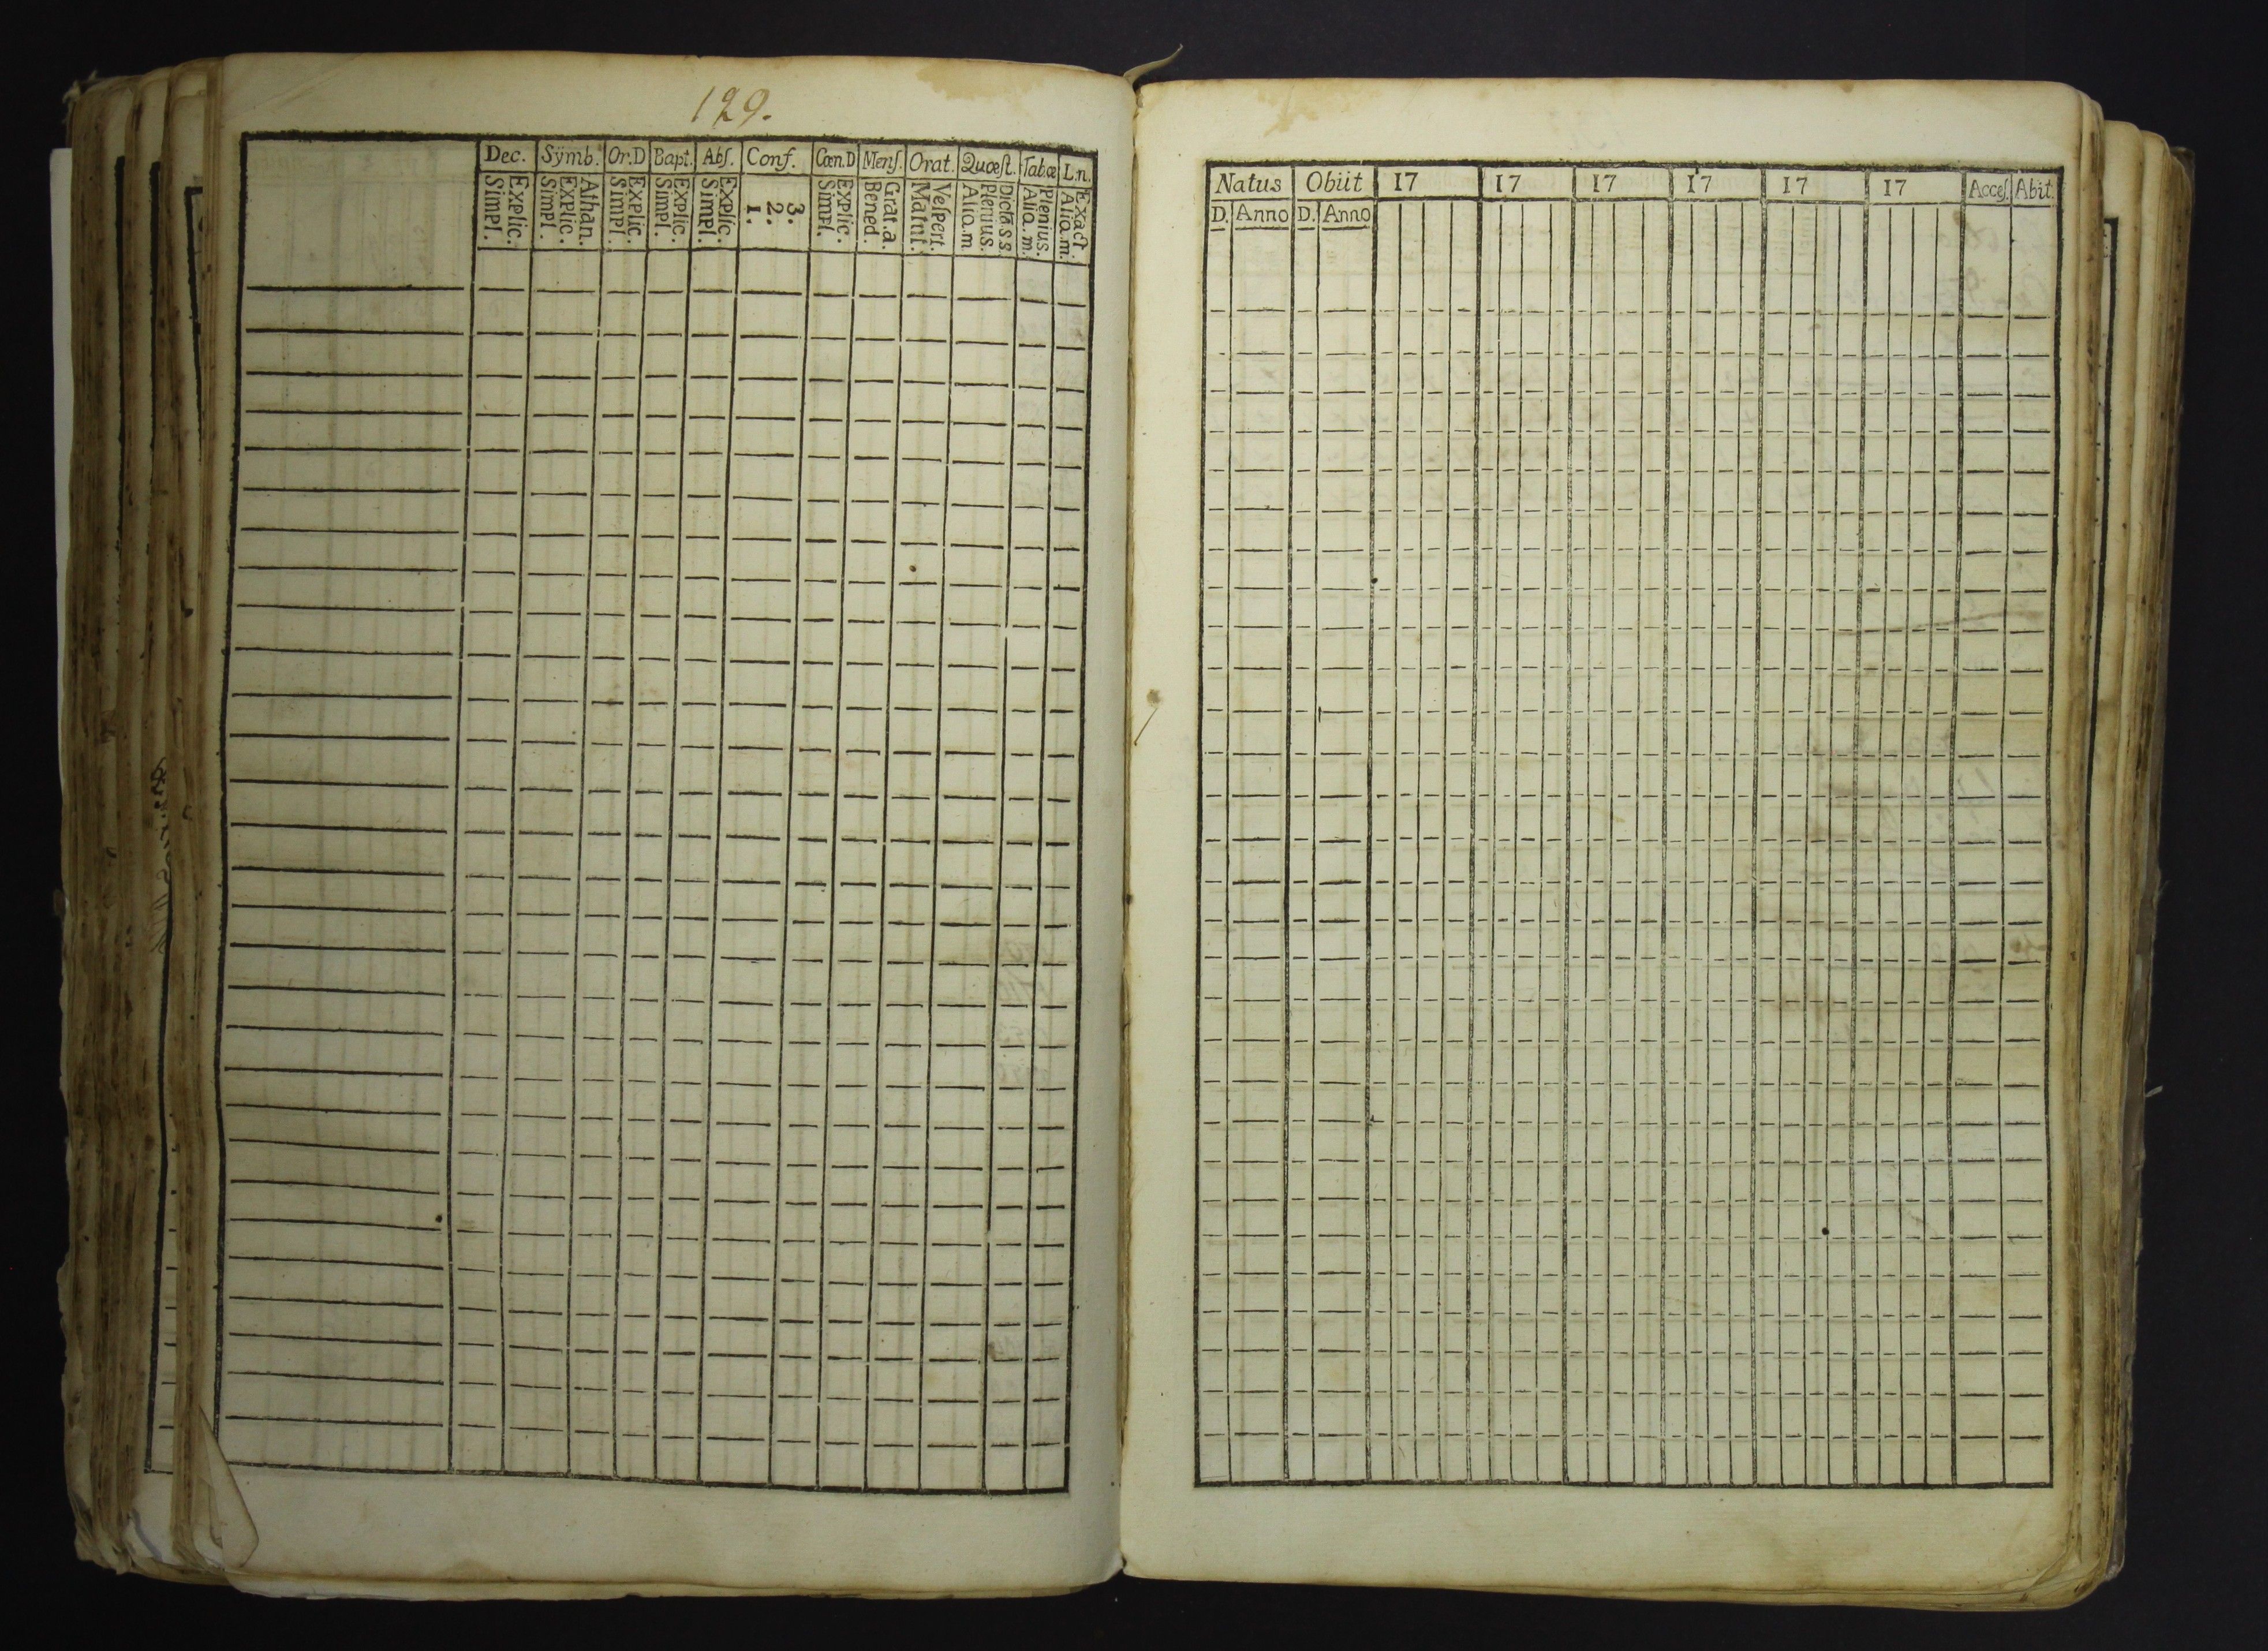 129.
Dec. Sÿmb. Or.D Bapt. Abſ. Conf. Cœn.D Menſ. Orat. Quæſt. Tabœ L.n.
Explic. Simpl. Athan. Explic. Simpl. Explic. Simpl. Explic. Simpl. Explic. Simpl. 3. 2. 1. Explic. Simpl. Grat.a. Bened. Veſpert. Matut. Dicta s s. Plerius. Aliq.m Plenius. Aliq.m. Exact. Aliq.m.
Natus Obiit 17 17 17 17 17 17 Acceſ. Abit.
D. Anno D. Anno